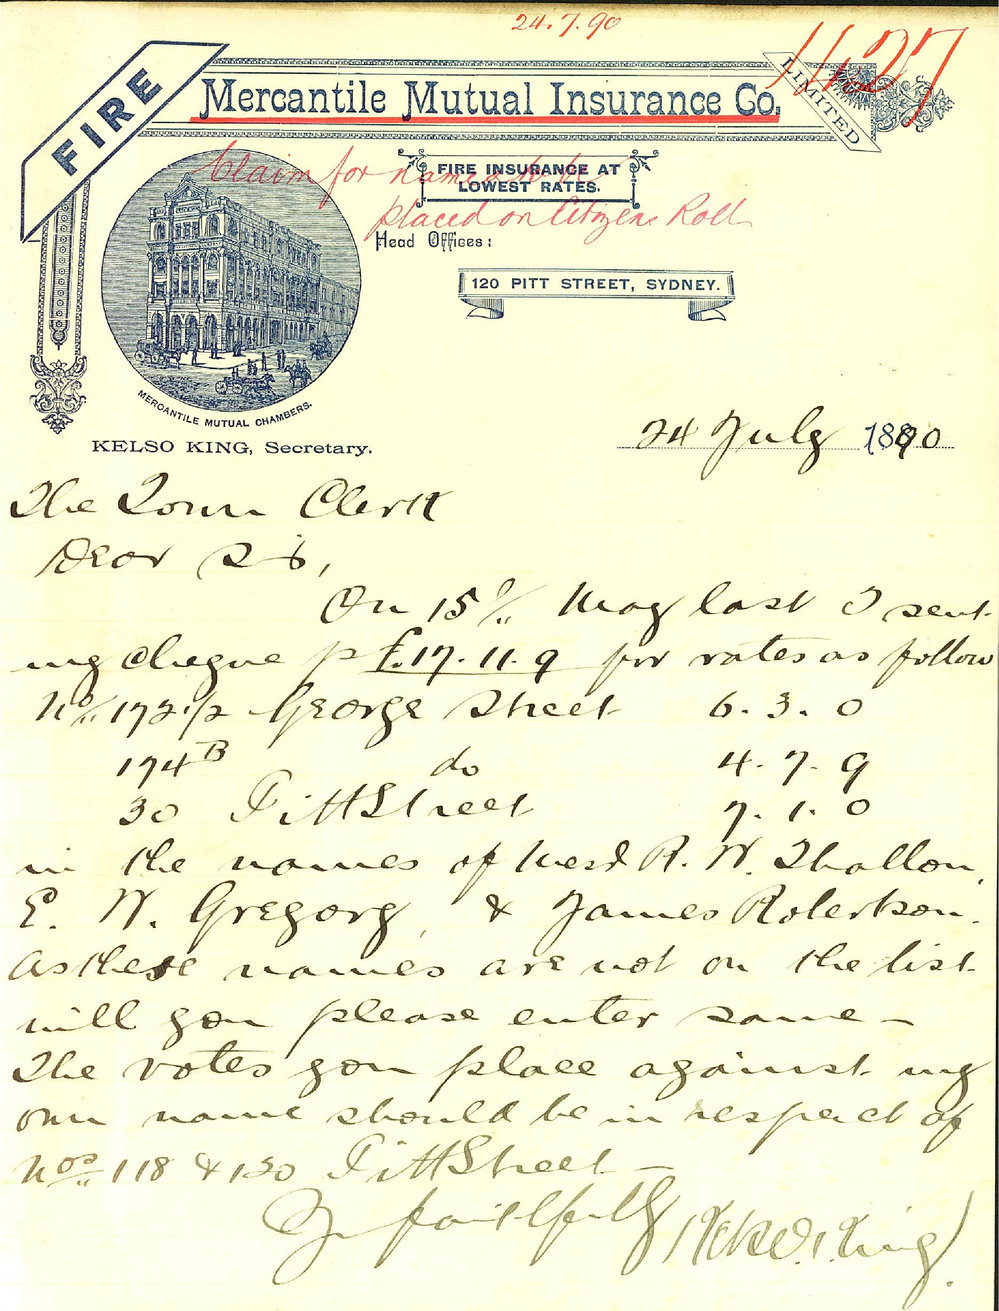 24.7.90
1127
FIRE
Mercantile Mutual Insurance Co.
LIMITED
Claim for names to be
placed on Citizens Roll
FIRE INSURANCE AT
LOWEST RATES.
Head Offices:
120 PITT STREET, SYDNEY.
MERCANTILE MUTUAL CHAMBERS.
KELSO KING, Secretary.
24 July 1890
The Town Clerk
Dear Sir,
On 15/ May last I sent
my cheque p £.17.11.9 for rates as follow
No 172 1/2 George Street 6.3.0
174B do 4.7.9
30 Pitt Street 7.1.0
in the names of Mess R. W. Thallon,
E. W. Gregory, & James Robertson.
As these names are not on the list
will you please enter same –
The votes you place against my
own name should be in respect of
Nos 118 & 130 Pitt Street –
Yrs faithfully Kelso King